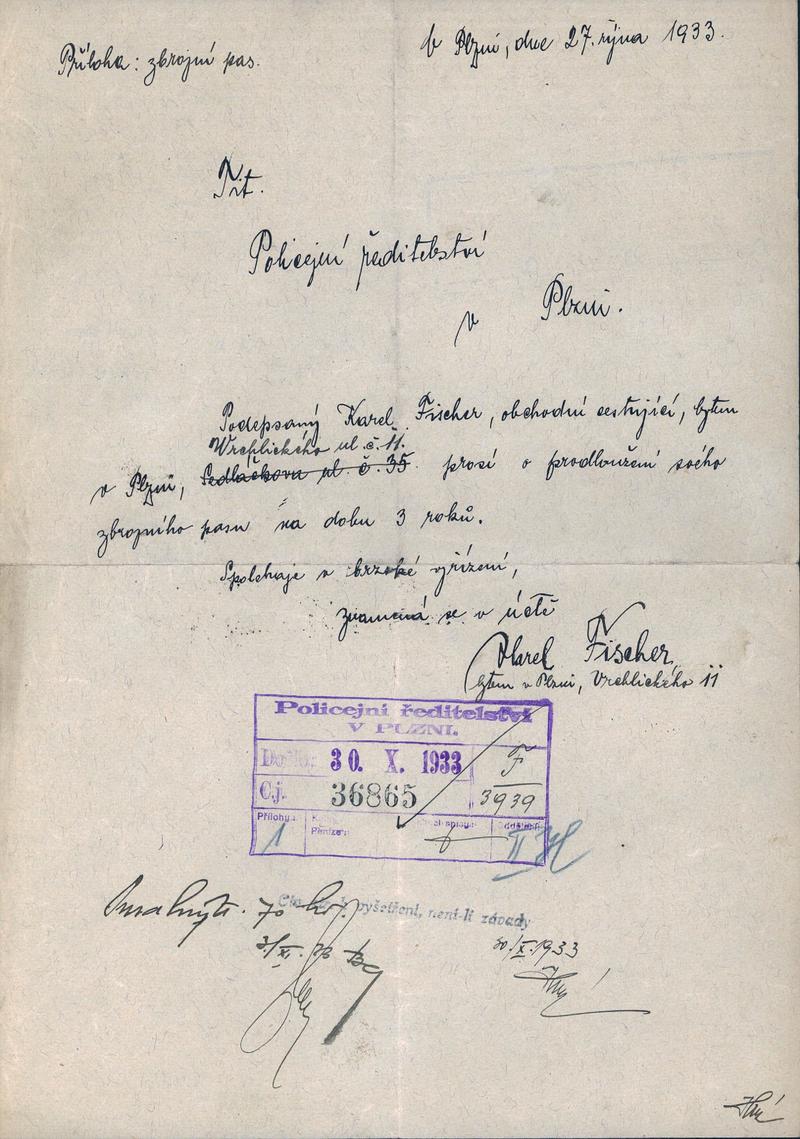 Příloha: zbrojní pas.
v Plzni, dne 27. října 1933.
Tit.
Policejní ředitelství
v Plzni.
Podepsaný Karel Fischer, obchodní cestující, bytem
Vrchlického ul. č. 11.
v Plzni, Sedláčkova ul. č. 35 prosí o prodloužení svého
zbrojního pasu na dobu 3 roků.
Spoléhaje v brzské vyřízení,
znamená se v úctě
Karel Fischer,
bytem v Plzni, Vrchlického 11
Policejní ředitelství
V PLZNI.
Došlo: 30. X. 1933
F
Č.j. 36865
3939
Příloha:
1
II
70
vyšetření, není-li závady
30./X. 1933